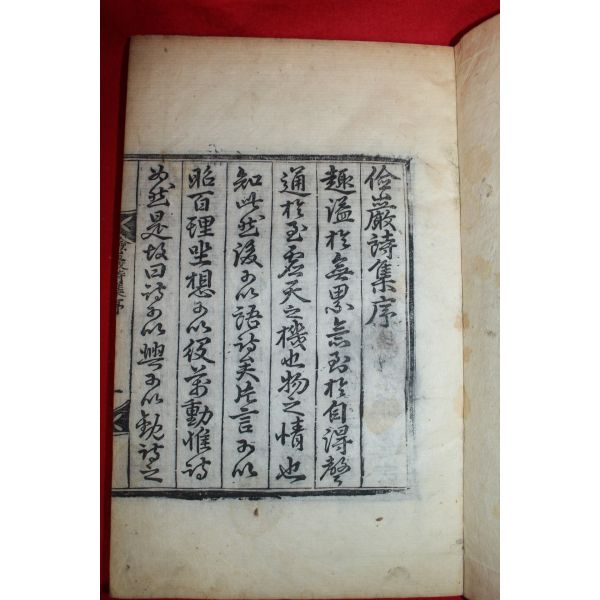 儉巖詩集序
趣溢於無累意到於自得聲
通於至虛天之機也物之情也
知此然後可以語詩矣片言可以
昭百理坐想可以役萬動惟詩
爲然是故曰詩可以興可以觀詩之